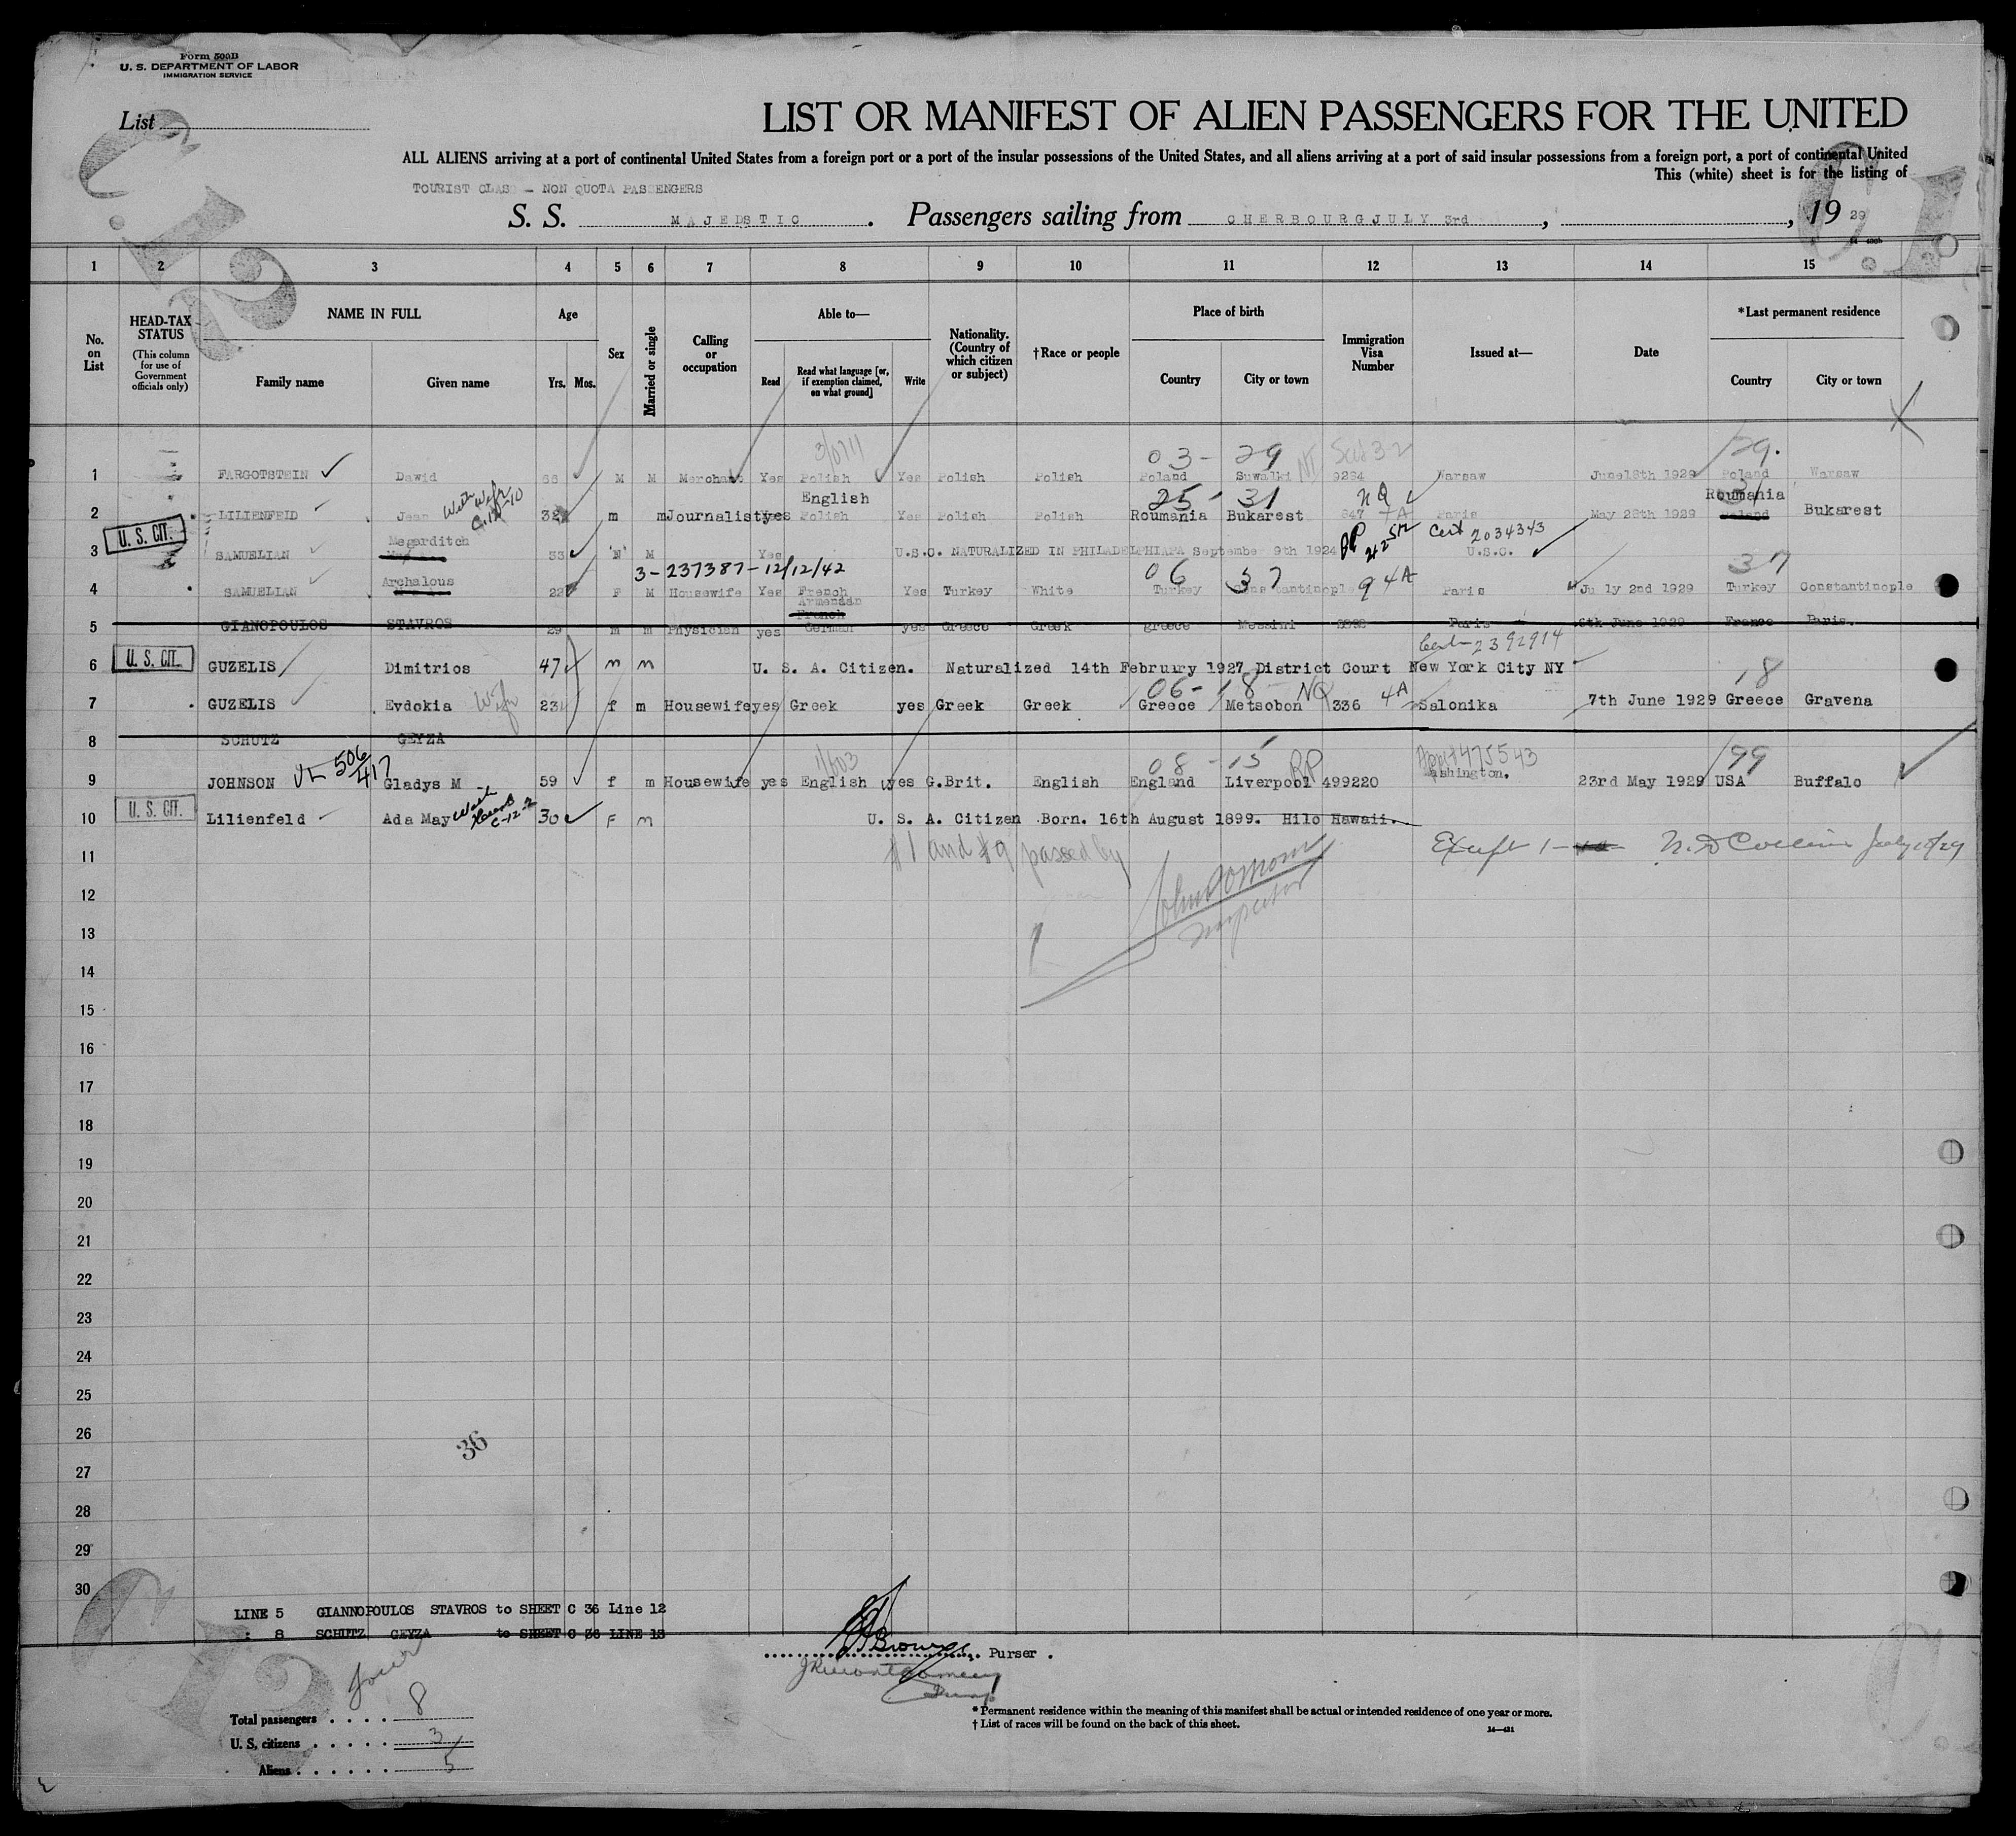 Form 500B
U. S. DEPARTMENT OF LABOR
IMMIGRATION SERVICE
List
LIST OR MANIFEST OF ALIEN PASSENGERS FOR THE UNITED
ALL ALIENS arriving at a port of continental United States from a foreign port or a port of the insular possessions of the United States, and all aliens arriving at a port of said insular possessions from a foreign port, a port of continental United
This (white) sheet is for the listing of
TOURIST CLAS - NON QUOTA PASSENGERS
S. S. MAJESTIC . Passengers sailing from CHERBOURG JULY 3rd , , 19 29
1 2 3 4 5 6 7 8 9 10 11 12 13 14 15
No. on List
HEAD-TAX STATUS (This column for use of Government officials only)
NAME IN FULL
Family name Given name
Age
Yrs. Mos.
Sex
Married or single
Calling or occupation
Able to—
Read Read what language [or, if exemption claimed, on what ground] Write
Nationality. (Country of which citizen or subject)
†Race or people
Place of birth
Country City or town
Immigration Visa Number
Issued at—
Date
*Last permanent residence
Country City or town
03- 29 29.
1 FARGOTSTEIN Dawid 66 M M Merchant Yes Polish Yes Polish Polish Poland Suwalki 9284 Warsaw June18th 1929 Poland Warsaw
English 25- 31 NQ 31 Roumania
2 LILIENFELD Jean With Wife C.12-10 32 m m Journalist yes Polish Yes Polish Polish Roumania Bukarest 847 Paris May 28th 1929 Poland Bukarest
U. S. CIT.
Megarditch Cert 2034343
3 SAMUELIAN 33 M M Yes U.S.C. NATURALIZED IN PHILADELPHIAPA September 9th 1924 U.S.C.
3-237387-12/12/42 06 37 37
Archalous
4 SAMUELIAN 22 F M Housewife Yes French Armenian Yes Turkey White Turkey Constantinople 9 4A Paris July 2nd 1929 Turkey Constantinople
French
5 GIANOPOULOS STAVROS 29 m m Physician yes German yes Greece Greek greece Messini Paris 6th June 1929 France Paris.
Cert-2392914
U. S. CIT.
6 GUZELIS Dimitrios 47 m m U. S. A. Citizen. Naturalized 14th February 1927 District Court New York City NY
06- 18 NQ 18
7 GUZELIS Evdokia Wife 23 f m Housewife yes Greek yes Greek Greek Greece Metsobon 336 4A Salonika 7th June 1929 Greece Gravena
8 SCHUTZ GEYZA
506/417 08 -15 RP 475543 99
9 JOHNSON Gladys M 59 f m Housewife yes English yes G.Brit. English England Liverpool 499220 Washington. 23rd May 1929 USA Buffalo
U. S. CIT.
10 Lilienfeld Ada May With Husb C-12-2 30 F m U. S. A. Citizen Born. 16th August 1899. Hilo Hawaii.
#1 and #9 passed by
Inspector
Except 1
11
12
13
14
15
16
17
18
19
20
21
22
23
24
25
26
36
27
28
29
30
LINE 5 GIANNOPOULOS STAVROS to SHEET C 36 Line 12
: 8 SCHUTZ GEYZA to SHEET C 36 LINE 13
Purser .
Total passengers . . . . 8
U. S. citizens . . . . . 3
Aliens . . . . . . 5
* Permanent residence within the meaning of this manifest shall be actual or intended residence of one year or more.
† List of races will be found on the back of this sheet.
14—421